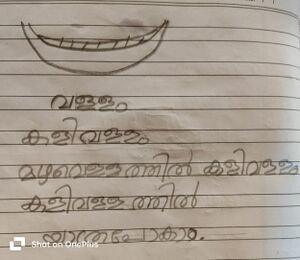 വള്ളം
കളിവള്ളം
മഴവെള്ളത്തിൽ കളിവള്ളം
കളിവള്ളത്തിൽ
യാത്രപോകാം.
Shot on OnePlus